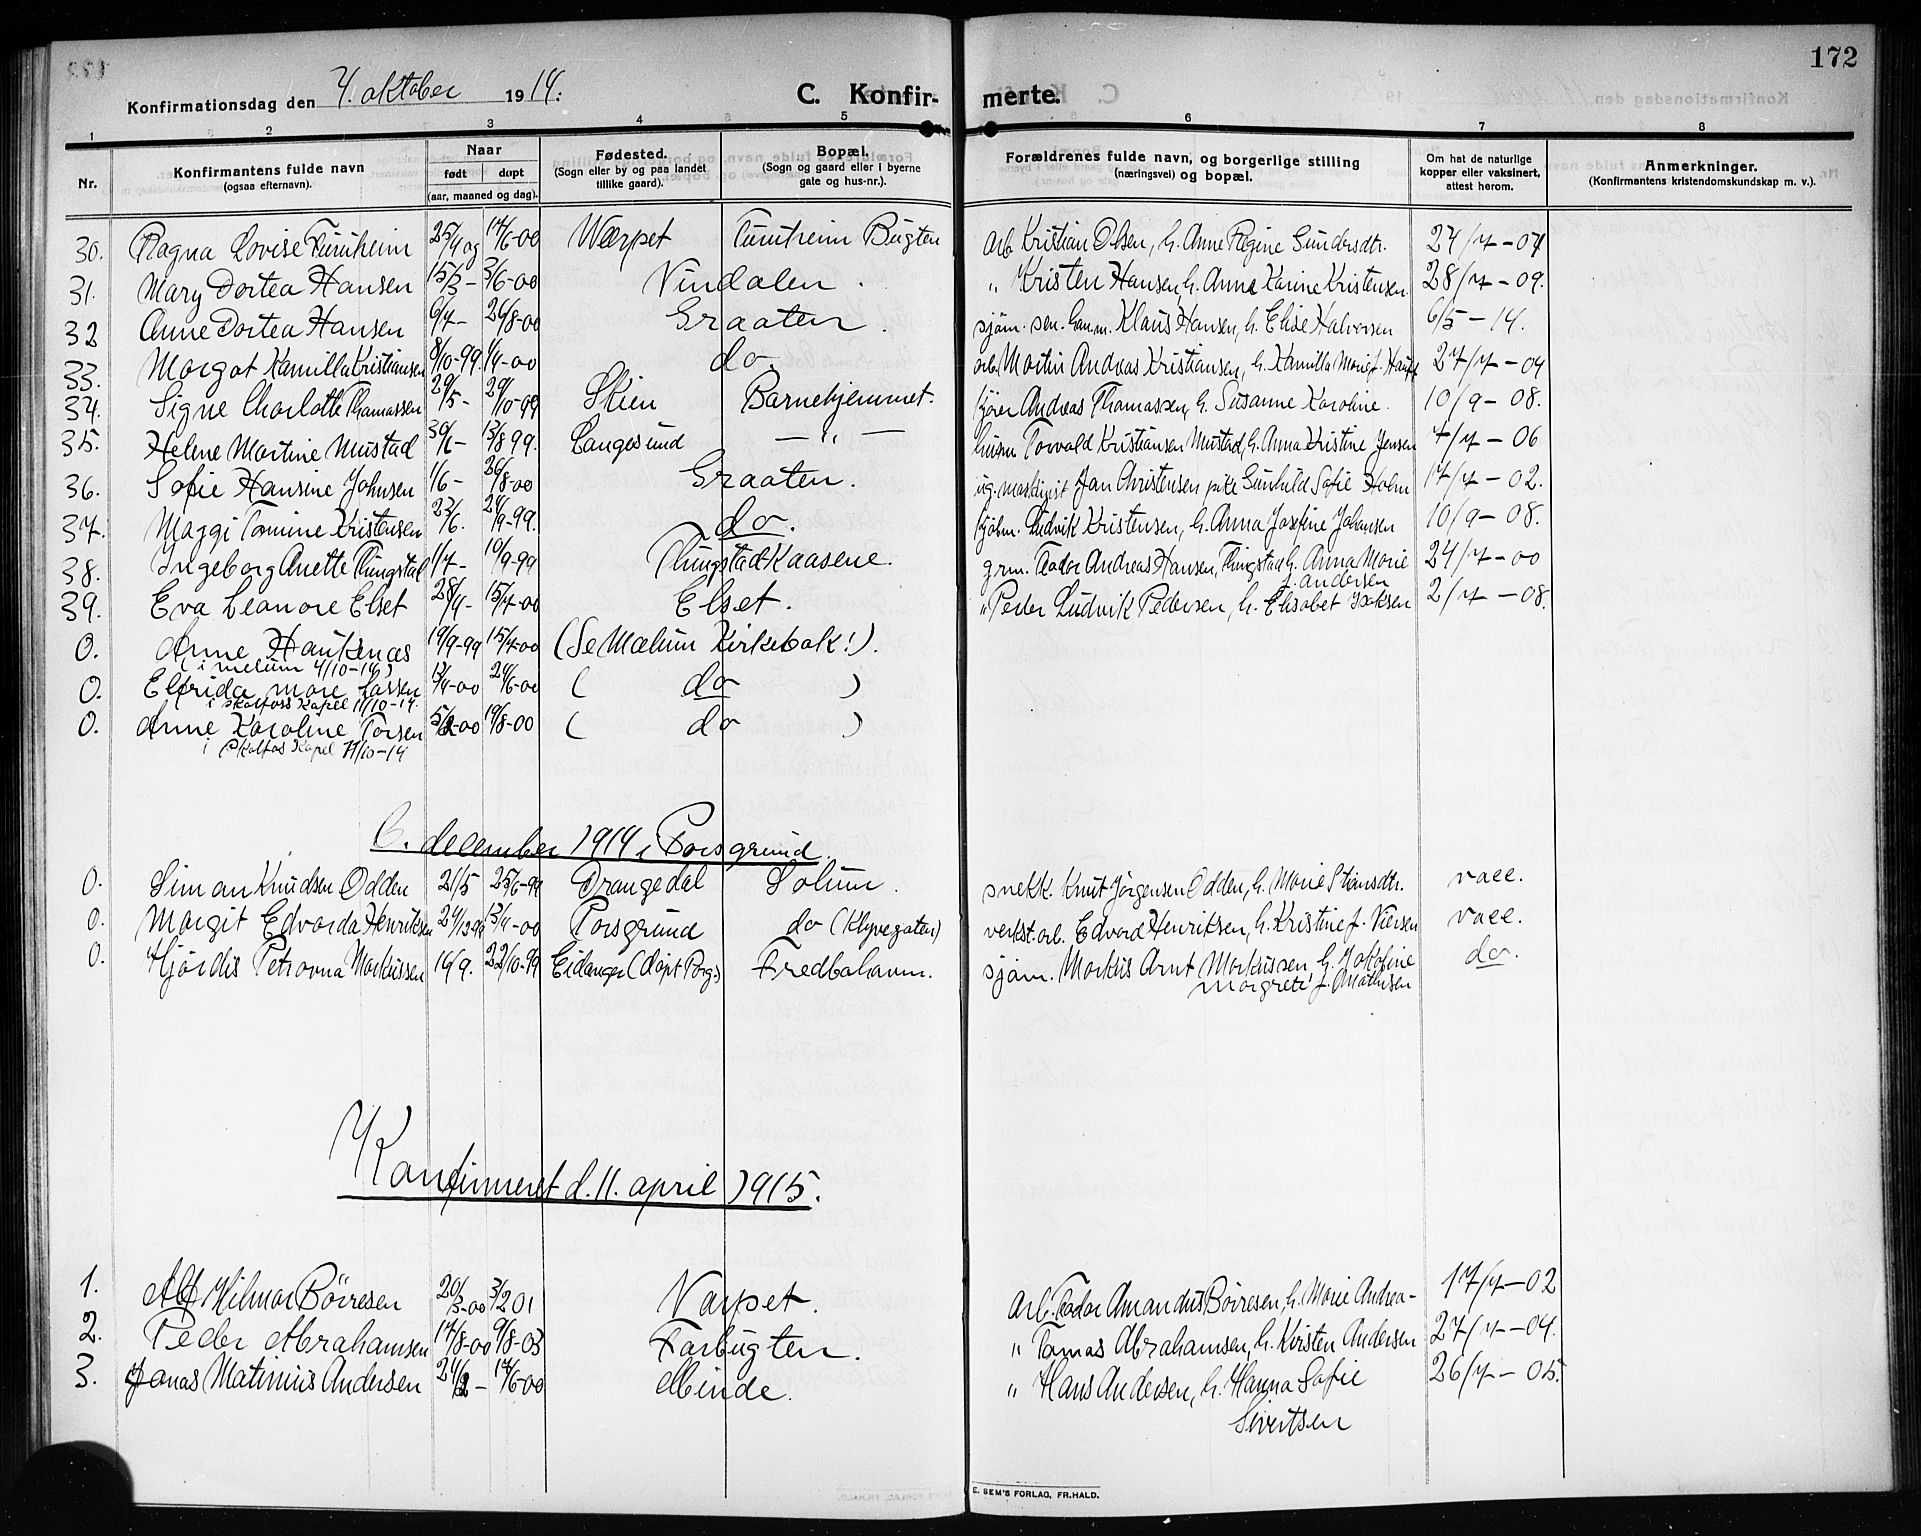 172
Konfirmationsdag den 4. oktober 1914.
C. Konfirmerte.
1 2 3 4 5 6 7 8
Nr. Konfirmantens fulde navn (ogsaa efternavn). Naar født døpt (aar, maaned og dag). Fødested. (Sogn eller by og paa landet tillike gaard). Bopæl. (Sogn og gaard eller i byerne gate og hus-nr.). Forældrenes fulde navn, og borgerlige stilling (næringsvei) og bopæl. Om hat de naturlige kopper eller vaksinert, attest herom. Anmerkninger. (Konfirmantens kristendomskundskap m. v.).
30. Ragna Lovise Tumheim 25/4 og 17/6-00 Værpet Tumheim Bugten arb. Kristian Olsen, h. Anne Regine Gundersdtr. 27/7-07
31. Mary Dortea Hansen 15/3- 3/6-00 Vindalen. " Kristen Hansen, h. Anna Karine Kristensen. 28/7-09.
32 Anne Dortea Hansen 6/7- 26/8-00 Graaten. sjøm. Klaus Hansen, h. Elise Halvorsen 6/5-14.
33. Margot Kamilla Kristiansen 8/10-99. 1/4-00 do. arb. Martin Andreas Kristiansen, h. Kamilla Marie f. 27/7-04
34. Signe Charlotte Thomassen 29/5- 29/10-99 Skien Barnehjemmet. Andreas Thomassen, h. Susanne Karoline. 10/9-08.
35. Helene Martine Mustad 30/6- 13/8 99. Langesund — " — Torvald Kristiansen Mustad, h. Anna Kristine Jensen 7/7-06
36. Sofie Hansine Johnsen 1/6- 26/8-00 Graaten. ug. maskinist Jan Christensen pike Gunhild Sofie Holm 17/7-02.
37. Maggi Tomine Kristensen 23/6. 24/9-99. do. Ludvik Kristensen, h. Anna Josefine Johansen 10/9-08.
38. Ingeborg Anette Flingstad 1/7- 10/9-99 Flingstad Kaasene. grm. Teodor Andreas Hansen, Flingstad h. Anna Marie f. Andersen 24/7-00
39. Eva Leanore Elset 28/9- 15/7-00 Elset. " Peder Ludvik Pedersen, h. Elisabet Isaksen 2/7-08.
0. Anne Haukenæs 19/9-99 15/7-00 (Se Mælum Kirkebok!).
(i Melum 4/10-14)
0. Elfrida Marie Larsen 24/6-00 ( do )
i Skotfoss Kapel 11/10-14.
0. Anne Karoline Torsen 5/2-00 19/8-00 ( do )
i Skotfos Kapel 11/10-14
6. december 1914 i Porsgrund.
0. Simon Knudsen Odden 21/5 25/6-99 Drangedal Solum. snekk. Knut Jørgensen Odden, h. Marie vacc.
0. Margit Edvarda Henriksen 24/12 99 13/4-00 Porsgrund do (Klyvegaten) verkst. arb. Edvard Henriksen, h. Kristine f. Nilsen vacc.
0. Hjørdis Petrovna Markussen 16/9. 22/10-99 Eidanger (døpt Porsg.) Fredbohavn. sjøm. Markus Arnt Markussen, h. Jokobine Margrete f. Mathisen do.
Konfirmeret d. 11. april 1915.
1. Alf Hilmar Børresen 20/3-00 3/2 01 Varpet. Arb. Teodor Amandus Børresen, h. Marie Andrea- 17/7-02
2. Peder Abrahamsen 17/8-00 9/8-03 Farbugten. " Tomas Abrahamsen, h. Kirsten Andersen 27/7-04.
3. Jonas Matinius Andersen 24/2- 17/6-00 Minde. " Hans Andersen, h. Hanna Sofie 26/7-05.
Sivertsen
E. SEM'S FORLAG, FR.HALD.